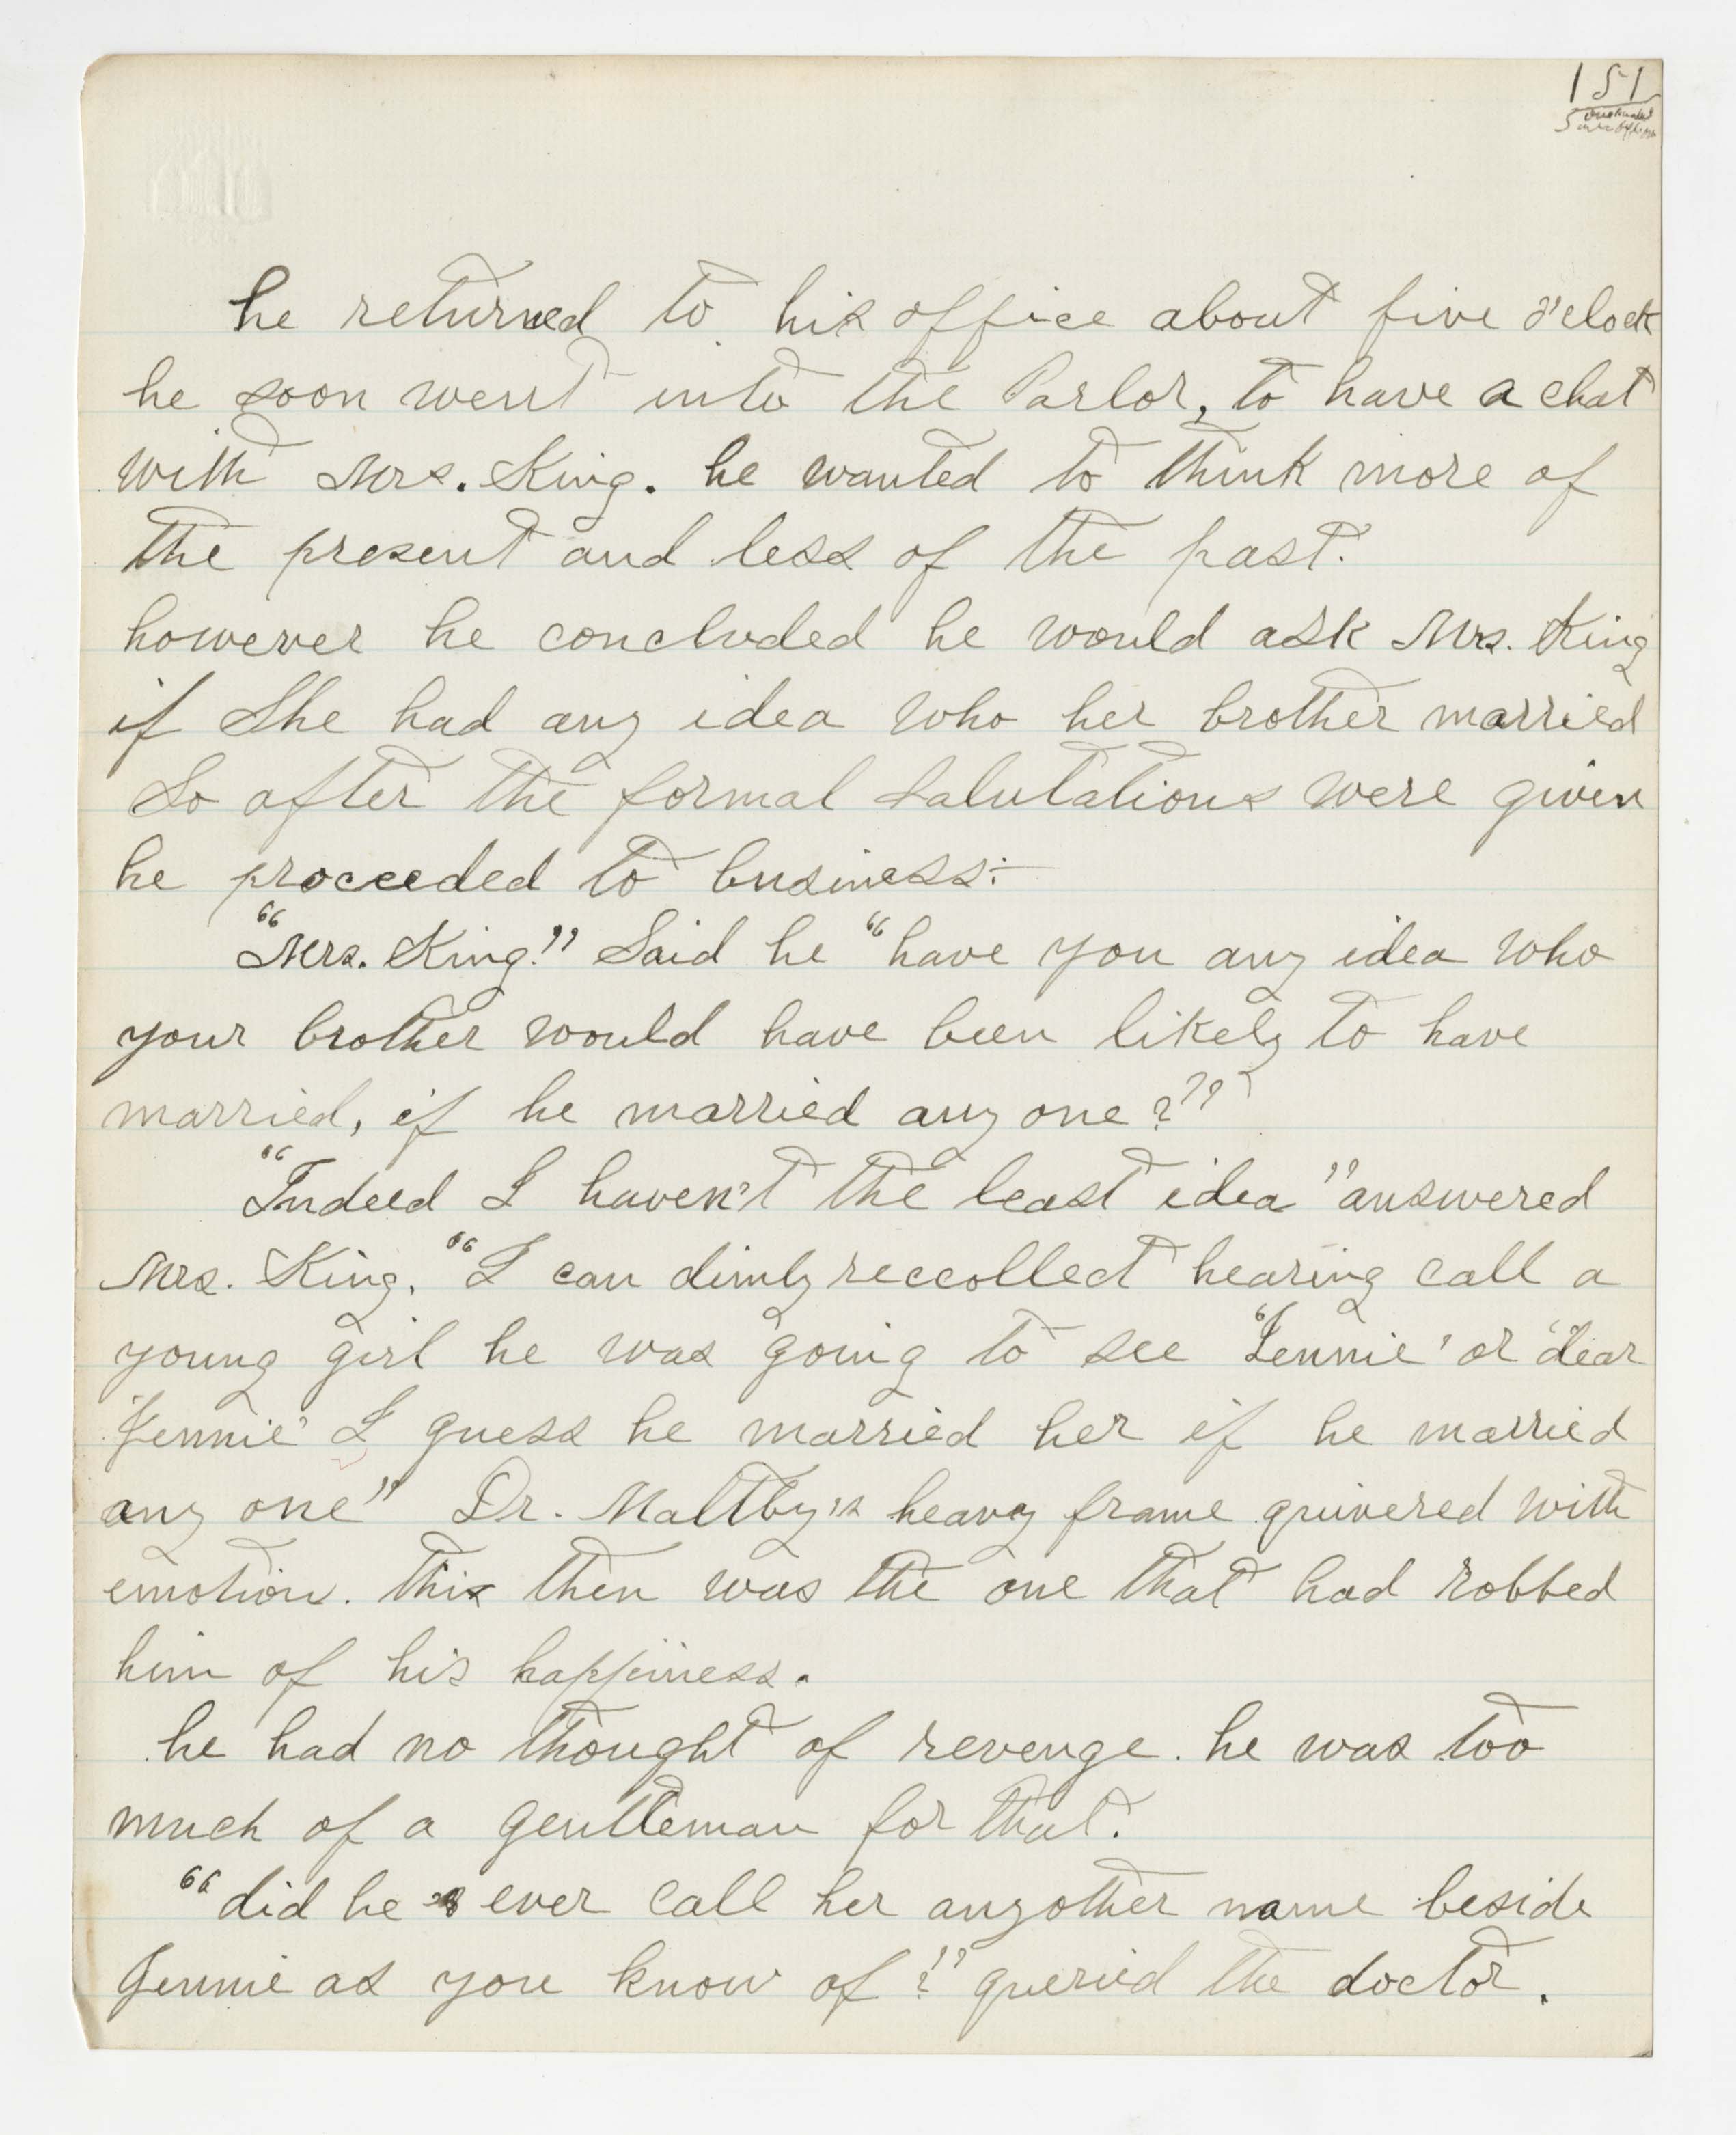 151
he returned to his office about five o'clock
he soon went into the Parlor, to have a chat
with Mrs. King. he wanted to think more of
the present and less of the past.
however he concluded he would ask Mrs. King
if She had any idea who her brother married
So after the formal Salutations were given
he proceeded to business:-
"Mrs. King!" Said he "have you any idea who
your brother would have been likely to have
married, if he married any one?"
"Indeed I haven't the least idea" answered
Mrs. King. "I can dimly reccollect hearing call a
young girl he was going to see 'Jennie' or 'dear
Jennie' I guess he married her if he married
any one" Dr. Maltby's heavy frame quivered with
emotion. this then was the one that had robbed
him of his happiness.
he had no thought of revenge. he was too
much of a gentleman for that.
"did he ever call her anyother name beside
Jennie as you know of?" queried the doctor.